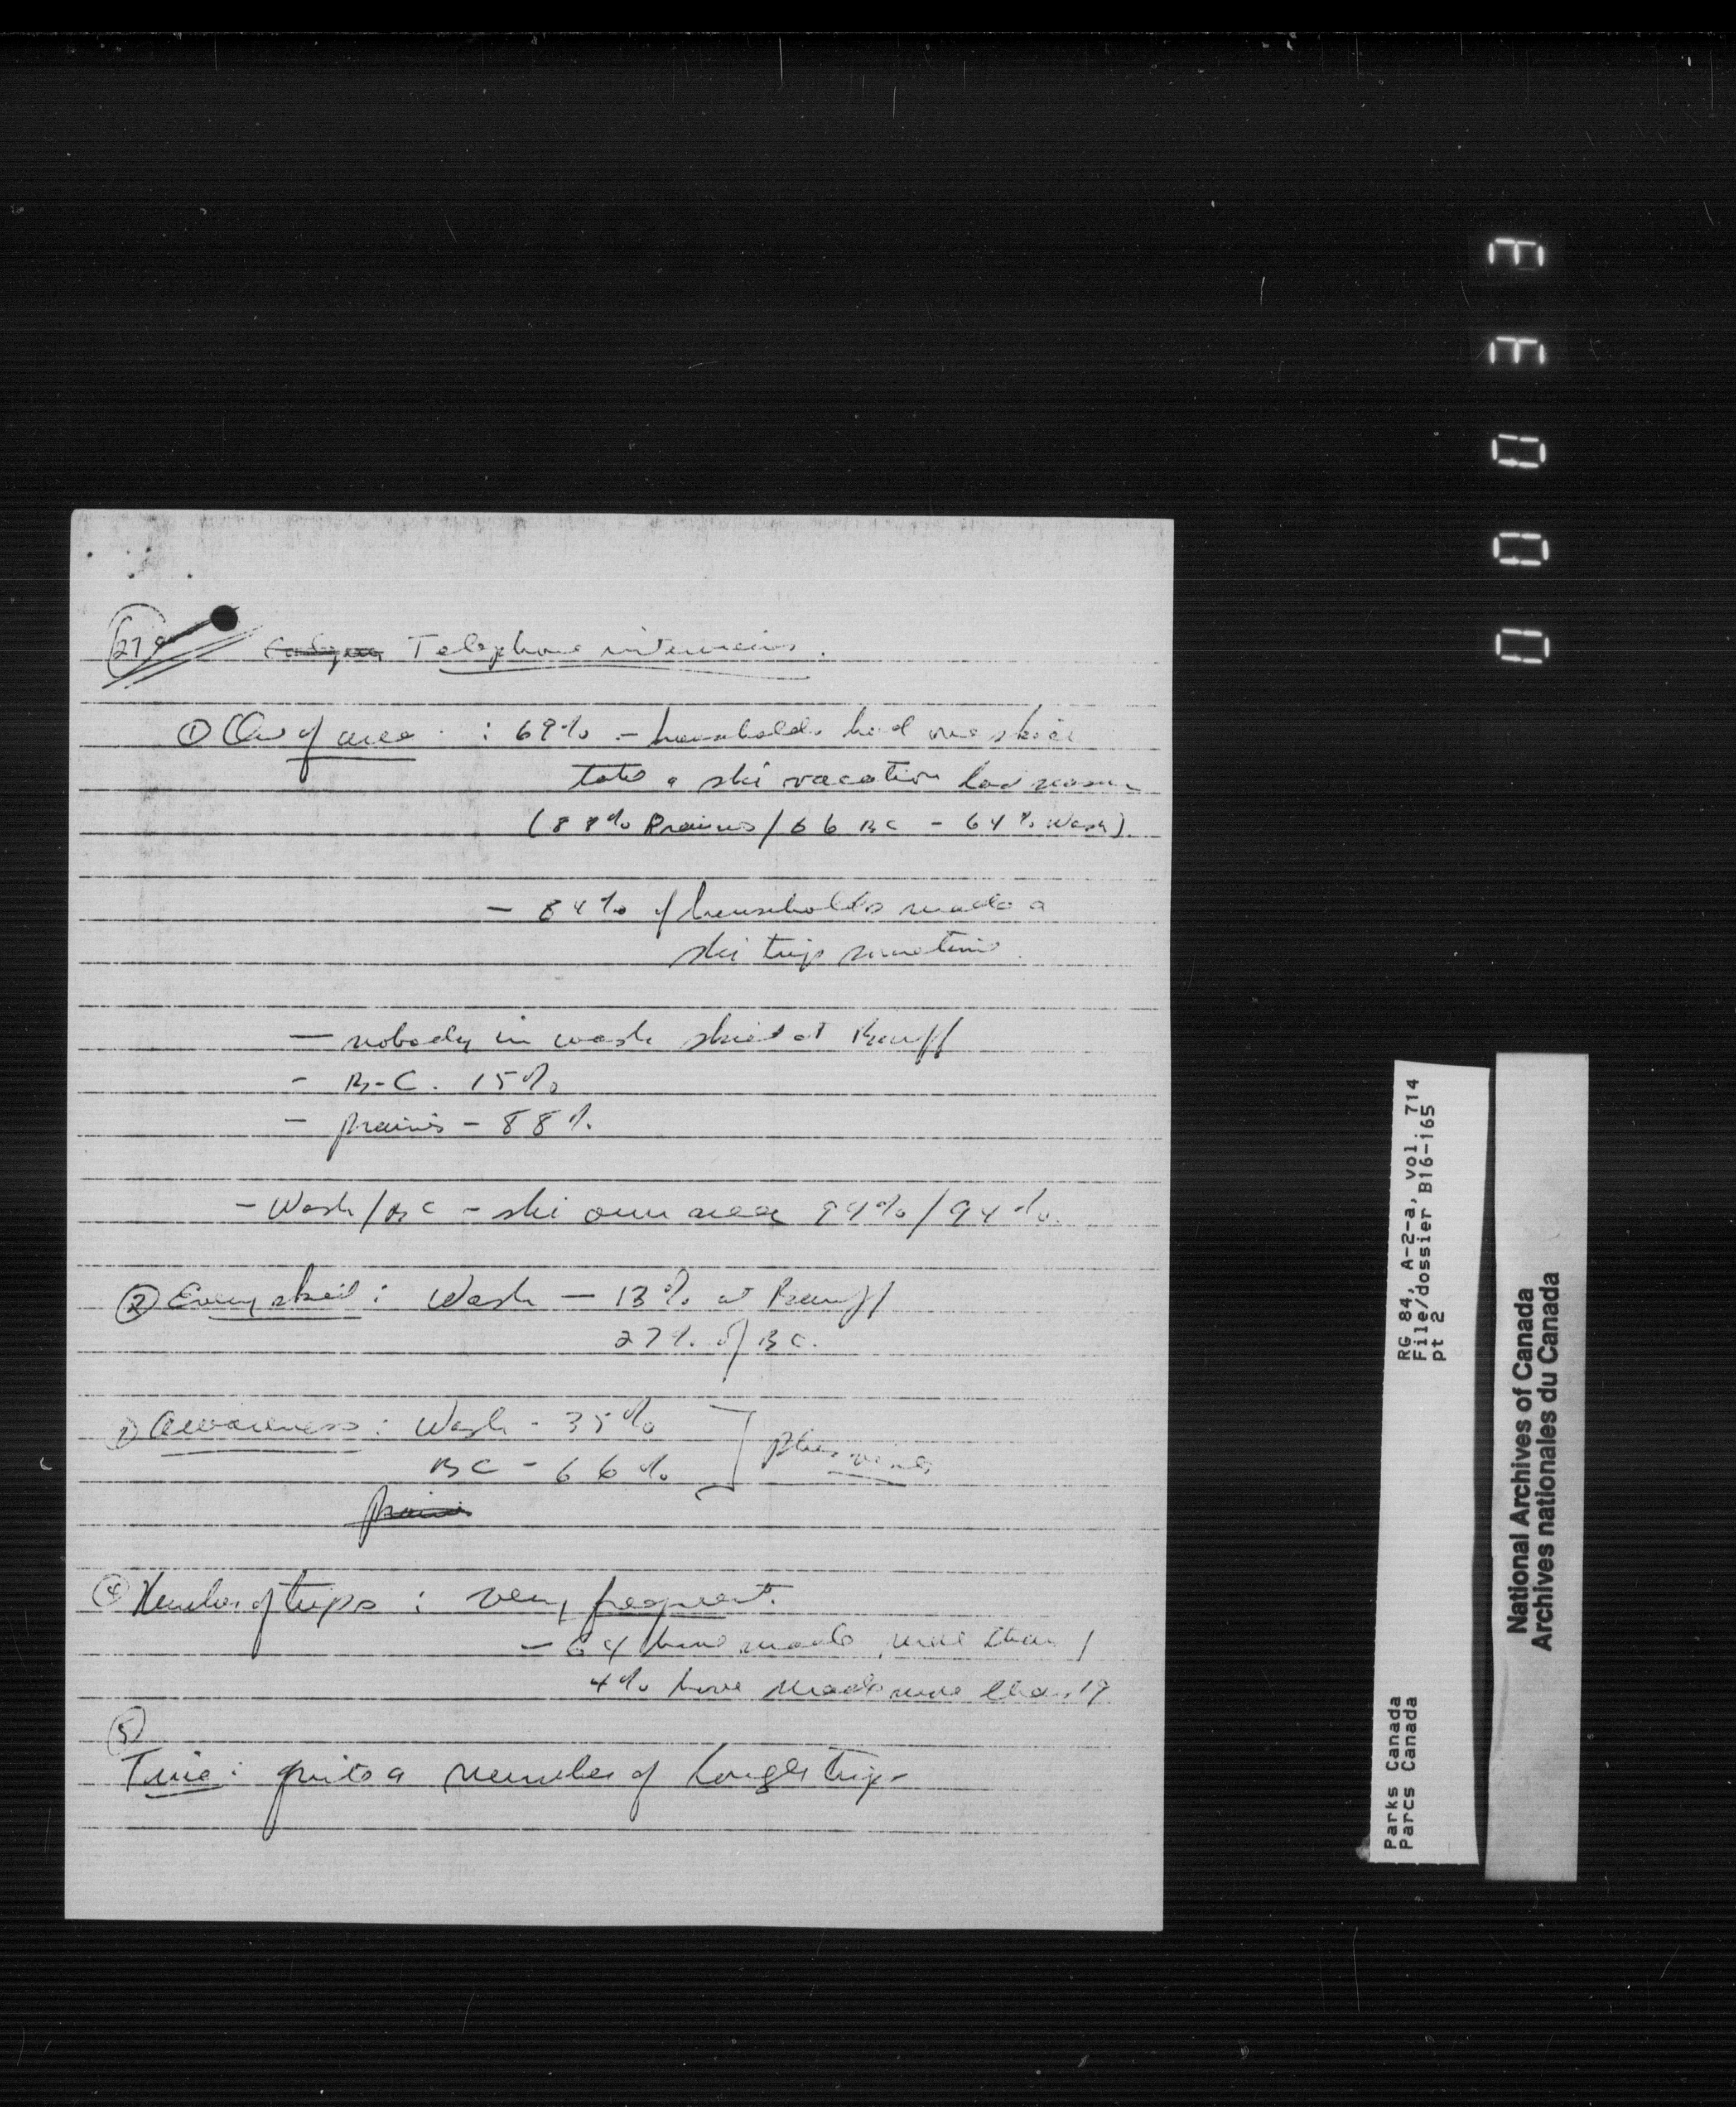 27
Telephone interviews.
① Out of area : 69% - households had one skier
take a ski vacation last season
(88% Prairies / 66 BC - 64% Wash).
- 84% of households made a
ski trip sometime.
- nobody in wash skied at Banff
- B.C. 15%
- prairies - 88%
- Wash / BC - ski own area 94% / 94%.
② Ever skied : Wash - 13% at Banff
27% of BC.
Awareness : Wash - 35%
BC - 66%
④ Number of trips : very frequent.
- 64 have made more than 1
4% have made more than 19
⑤
Time : quite a number of longer trips
00033
RG 84, A-2-a, vol. 714
File/dossier B16-165
pt 2
Parks Canada
Parcs Canada
National Archives of Canada
Archives nationales du Canada